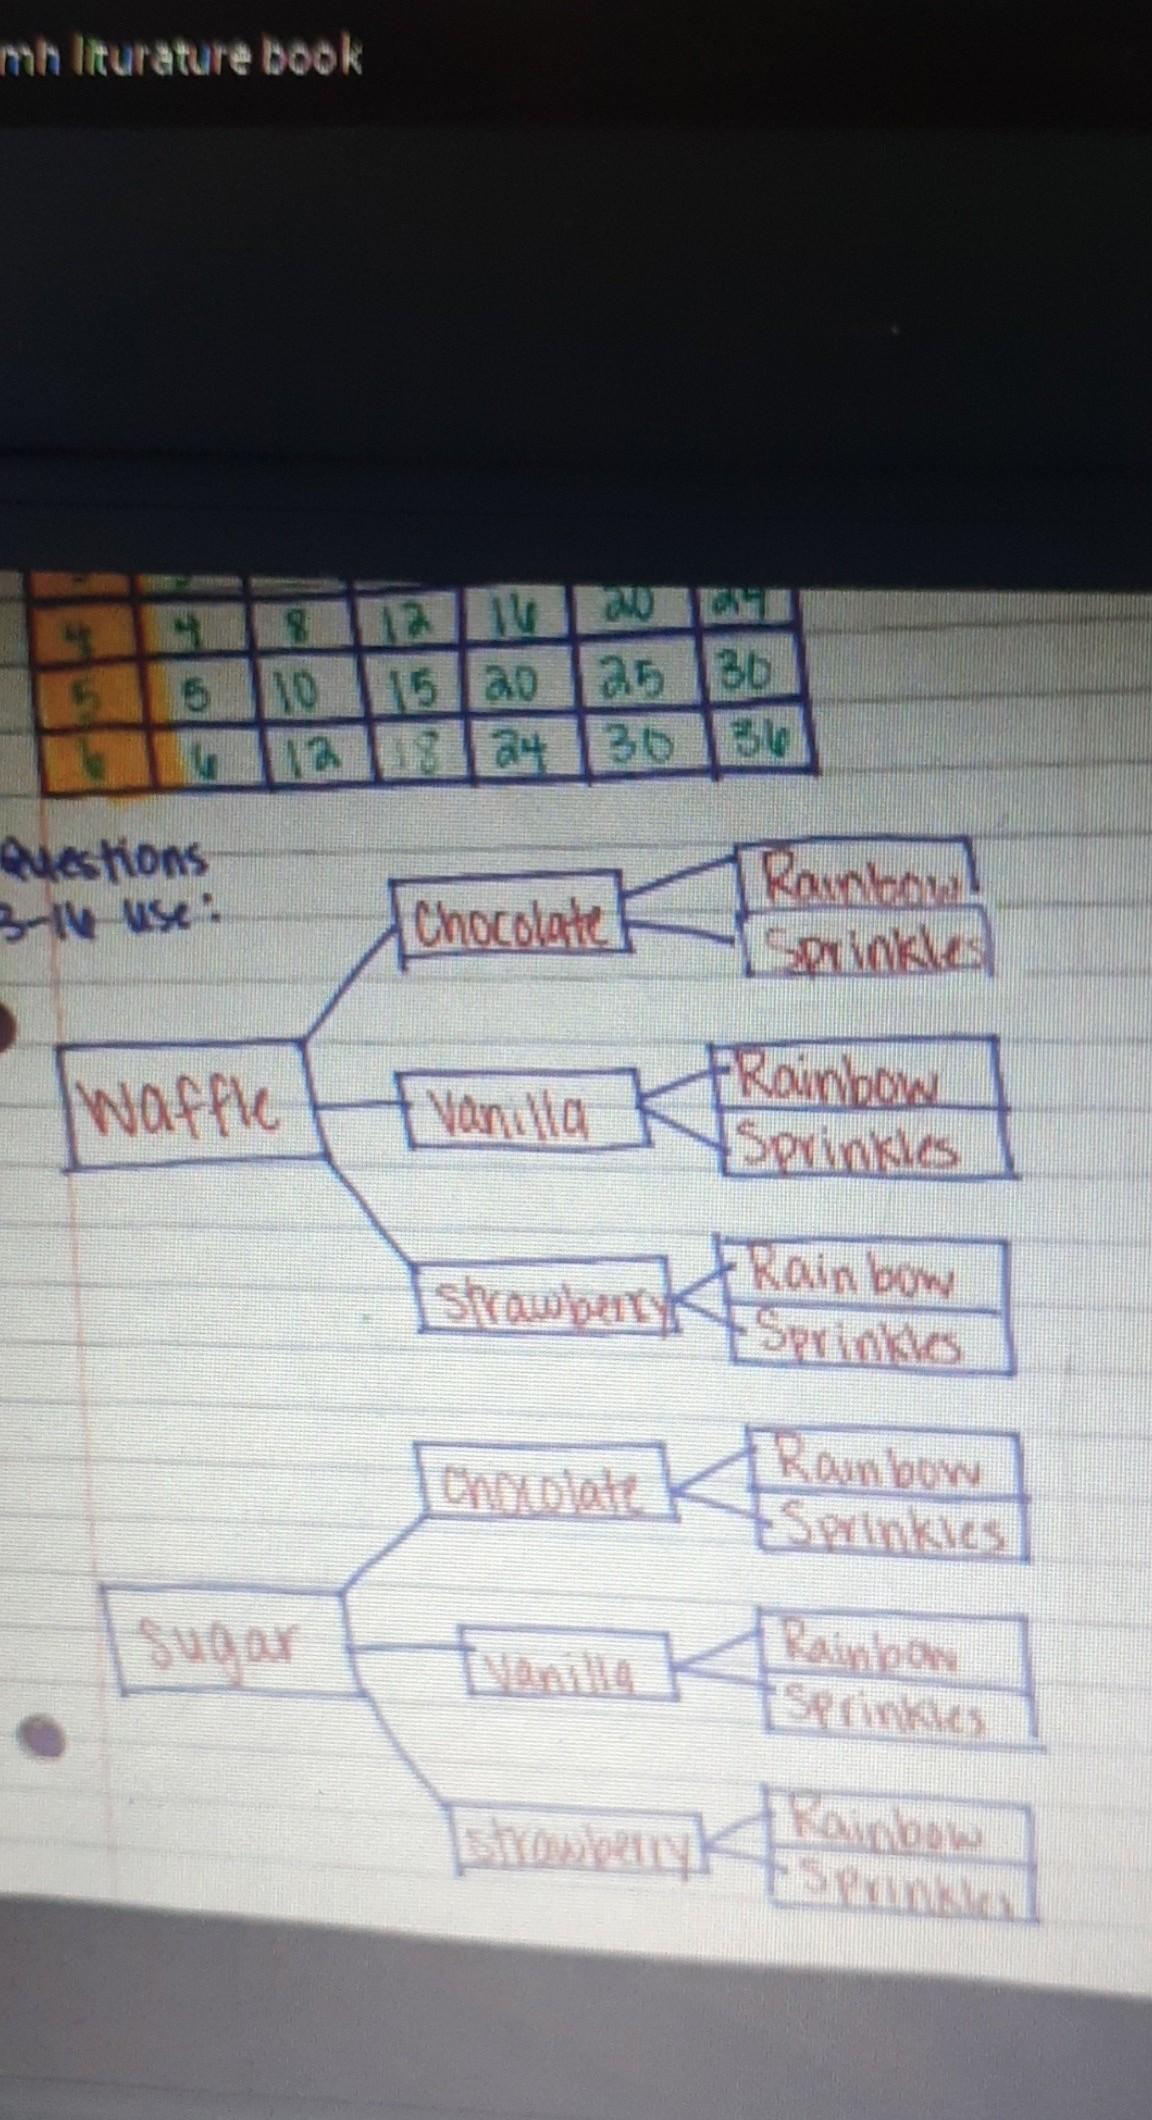 mh liturature book
4 4 8 12 16 20 24
5 5 10 15 20 25 30
6 6 12 18 24 30 36
Questions
3-16 use:
Chocolate
Rainbow
Sprinkles
Waffle
Vanilla
Rainbow
Sprinkles
Strawberry
Rainbow
Sprinkles
Chocolate
Rainbow
Sprinkles
Sugar
Vanilla
Rainbow
Sprinkles
Strawberry
Rainbow
Sprinkles